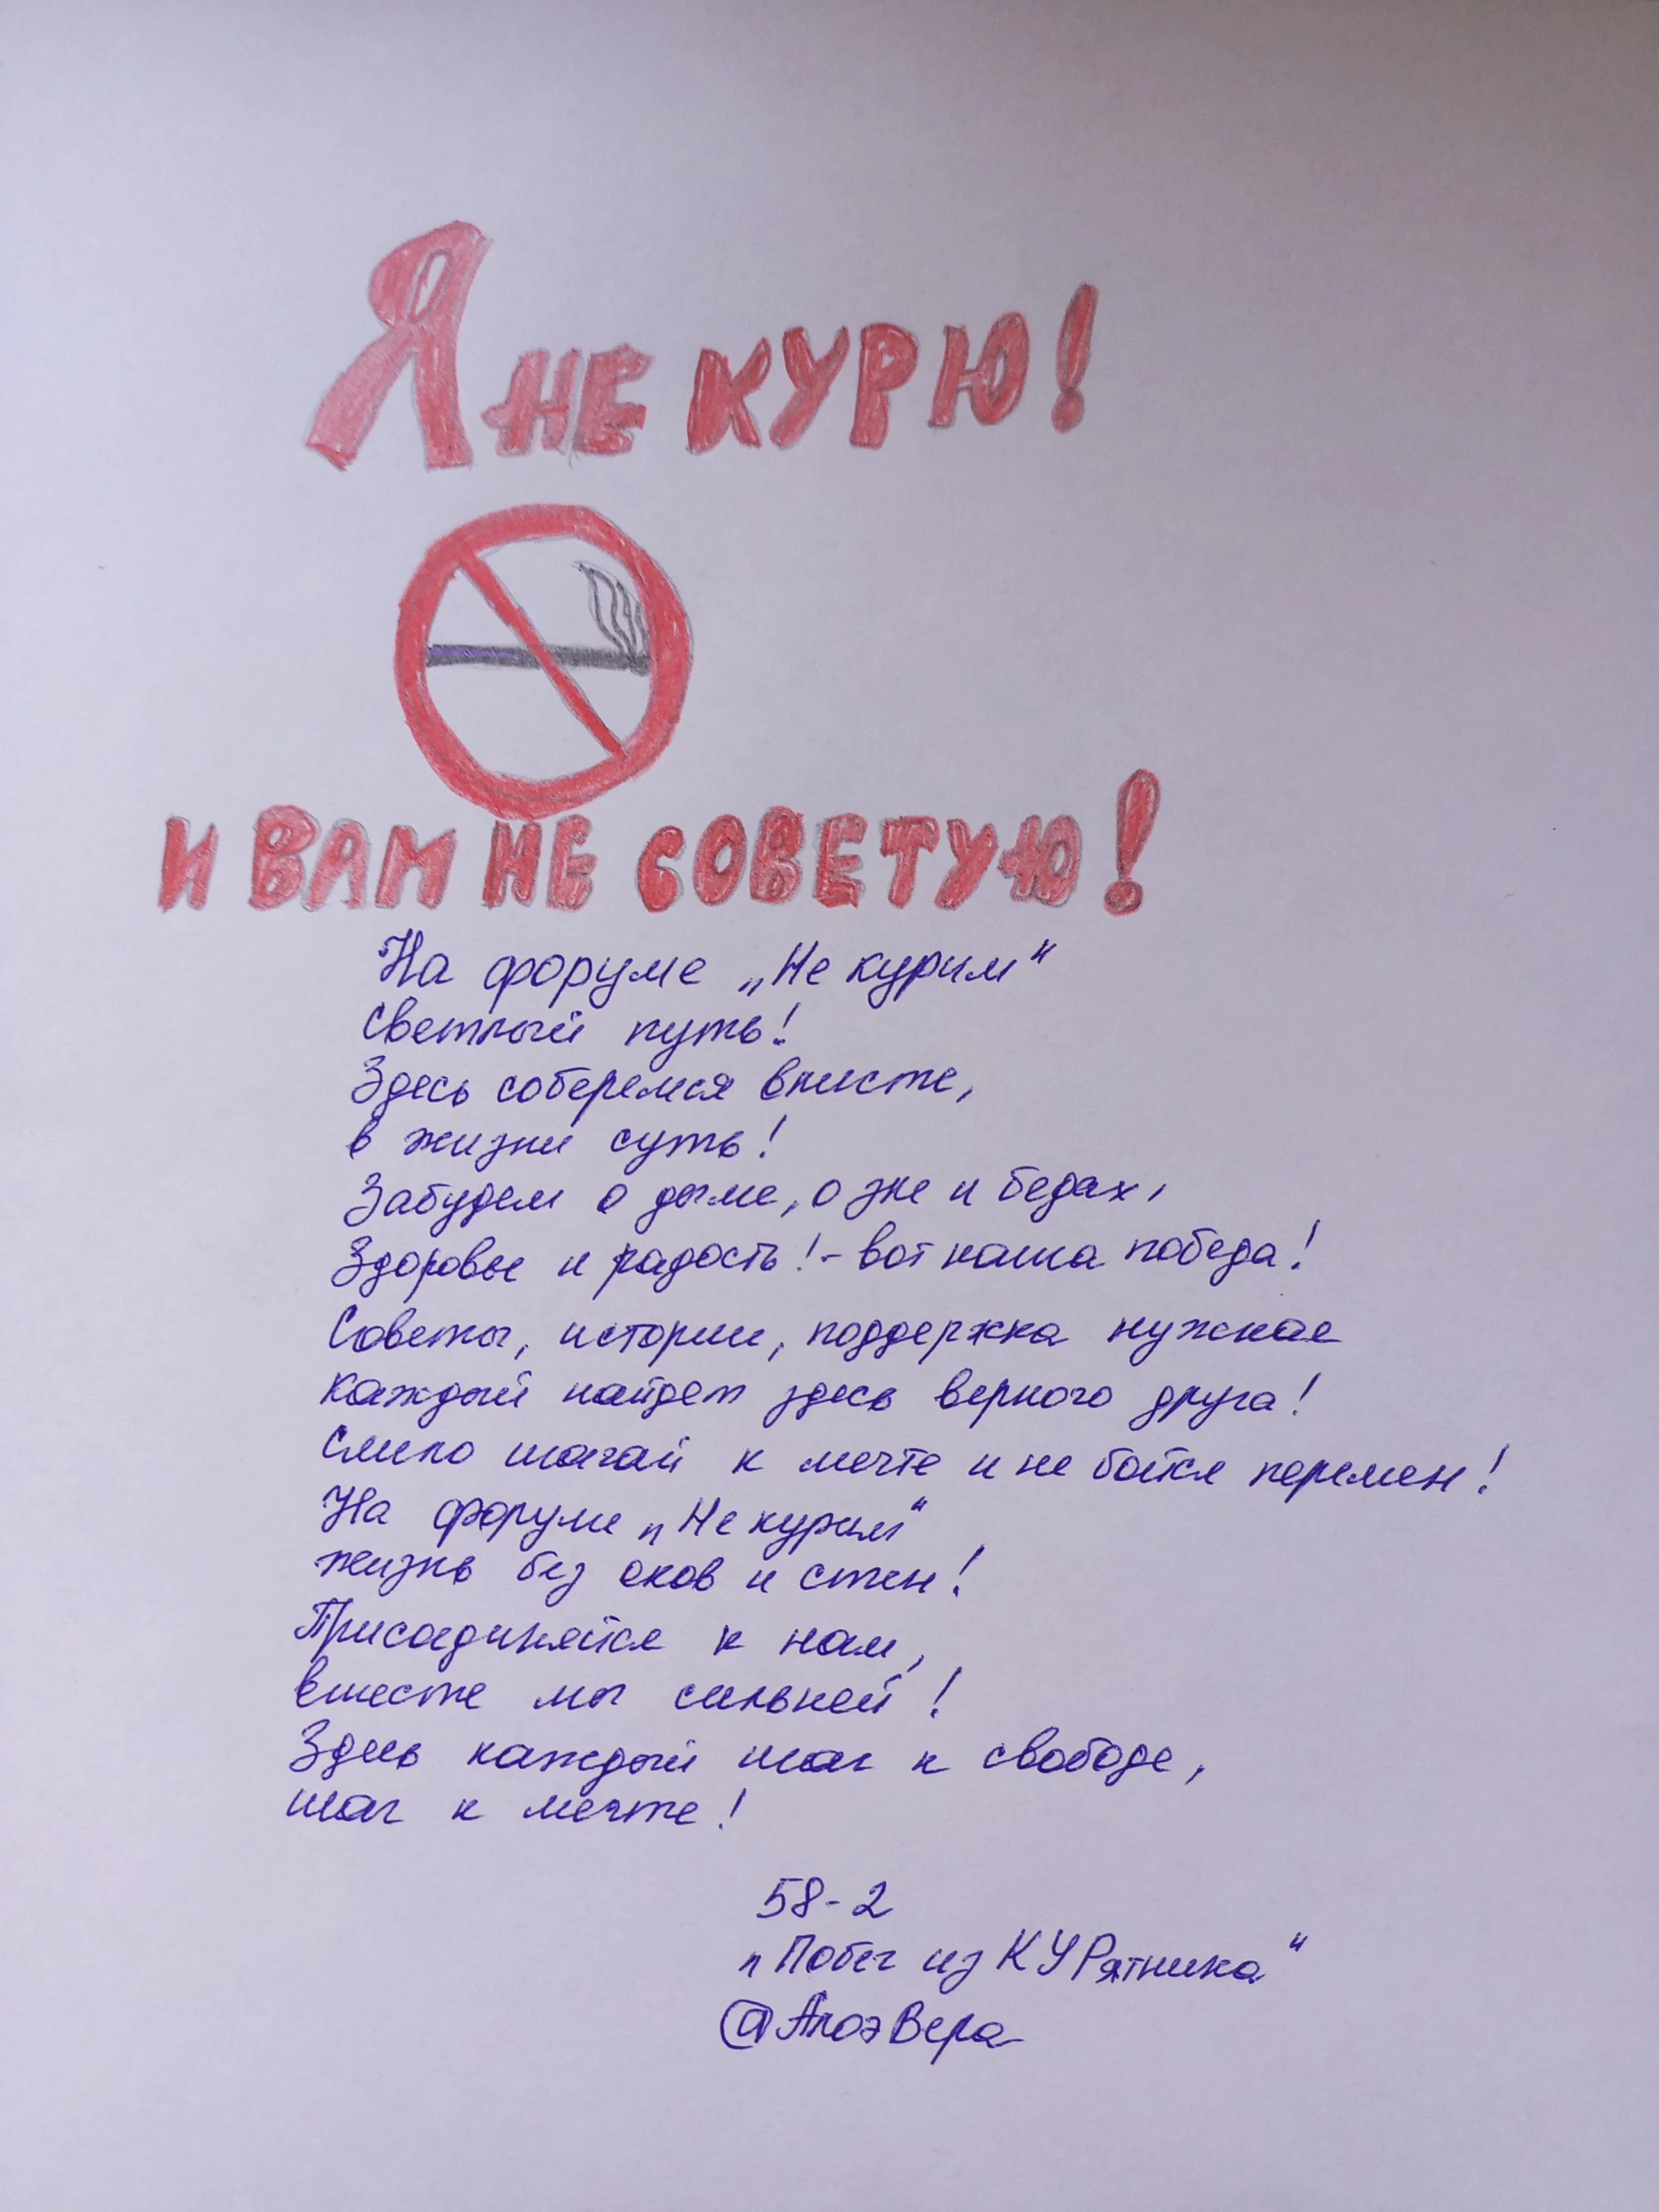 Я НЕ КУРЮ!
И ВАМ НЕ СОВЕТУЮ!
На форуме „Не курим“
Светлый путь!
Здесь соберемся вместе,
в жизни суть!
Забудем о дыме, о зле и бедах,
Здоровье и радость! - вот наша победа!
Советы, истории, поддержка нужная
Каждый найдет здесь верного друга!
Смело шагай к мечте и не бойся перемен!
На форуме „Не курим“
жизнь без оков и стен!
Присоединяйся к нам,
вместе мы сильней!
Здесь каждый шаг к свободе,
шаг к мечте!
58-2
„Побег из КУРятника“
@АлоэВера